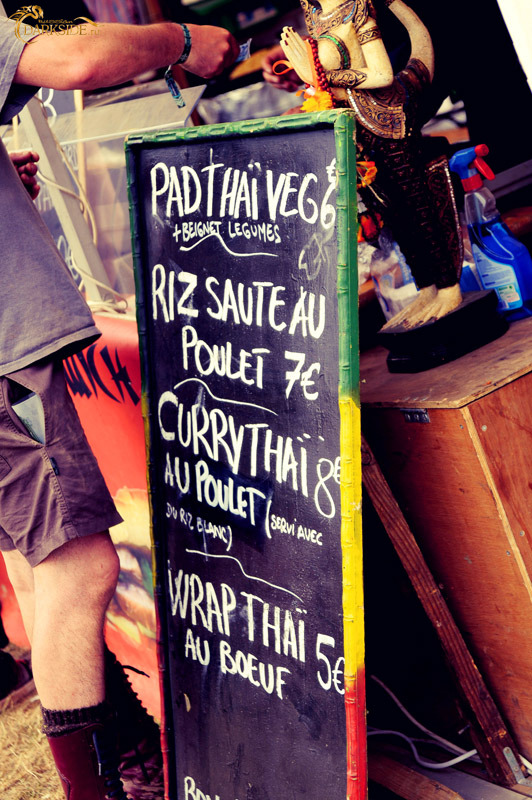 DARKSIDE
PAD THAÏ VEGG 6€
+ BEIGNET LEGUMES
RIZ SAUTE AU
POULET 7€
CURRY THAÏ 8€
AU POULET (SERVI AVEC
DU RIZ BLANC)
WRAP THAÏ 5€
AU BOEUF